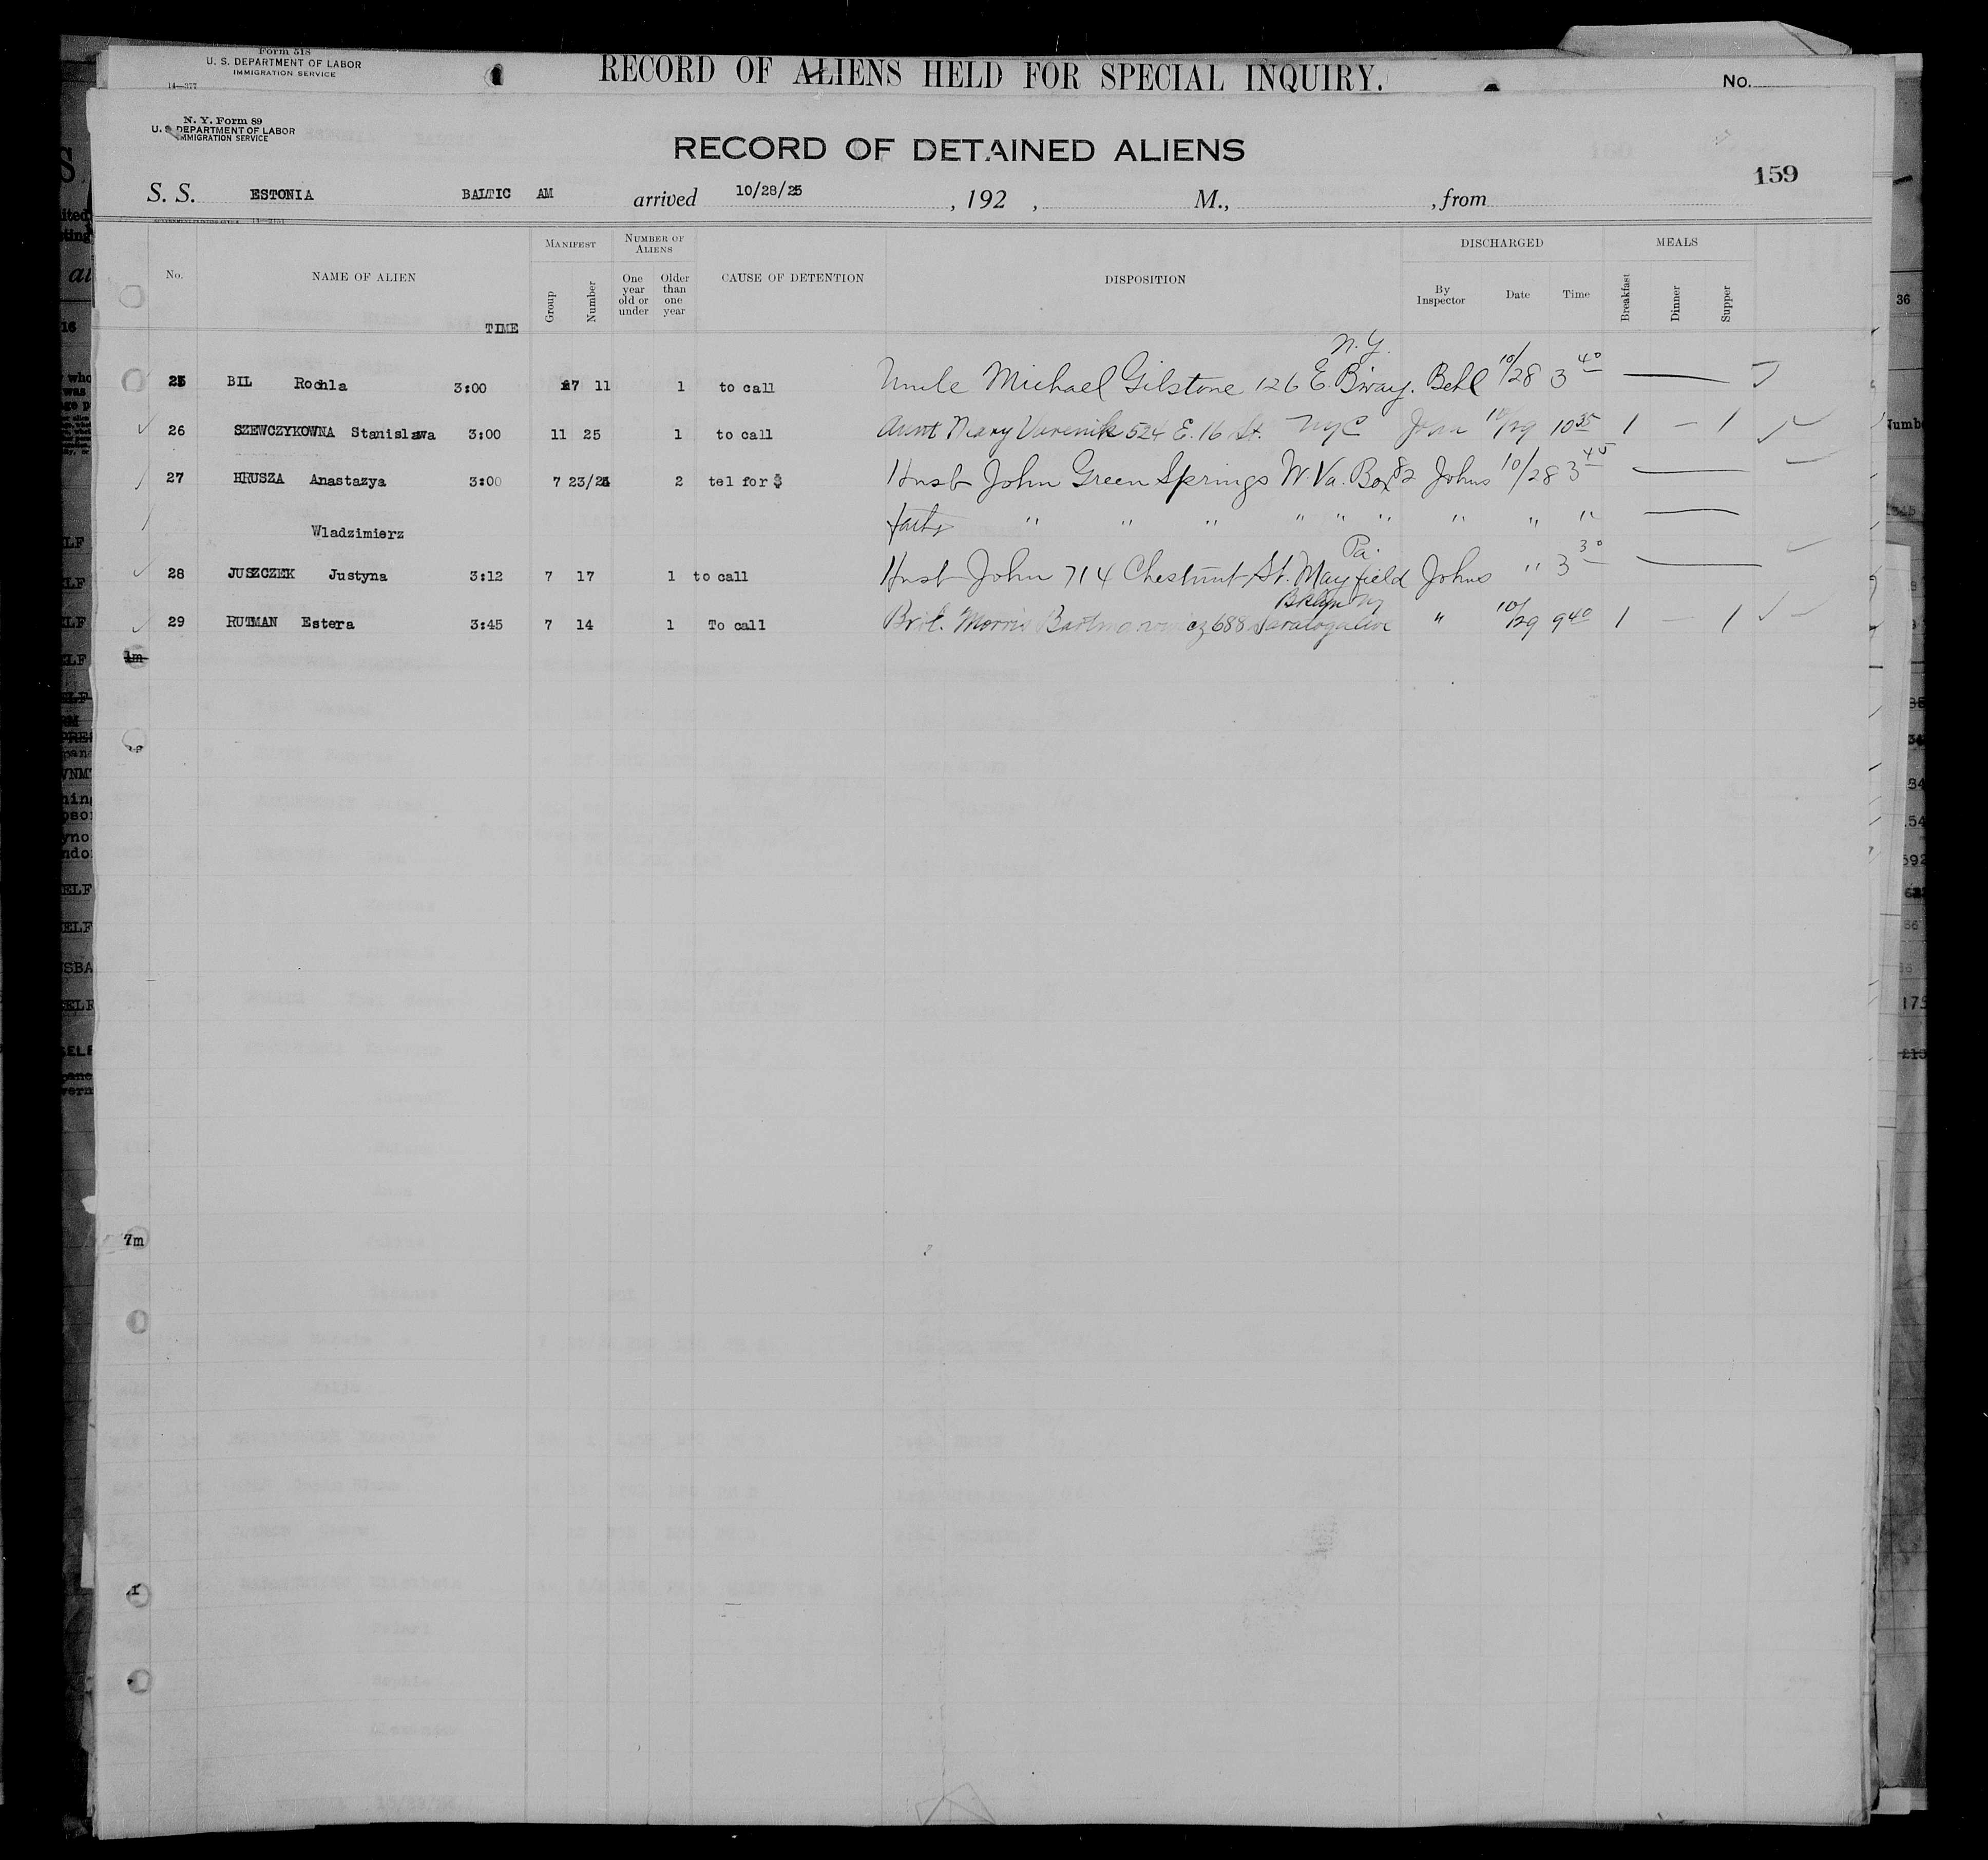 Form 518
U. S. DEPARTMENT OF LABOR
IMMIGRATION SERVICE
RECORD OF ALIENS HELD FOR SPECIAL INQUIRY.
No.
N. Y. Form 89
U. S. DEPARTMENT OF LABOR
IMMIGRATION SERVICE
RECORD OF DETAINED ALIENS
159
S. S. ESTONIA BALTIC AM arrived 10/28/25, 192 , M., , from
No. NAME OF ALIEN TIME MANIFEST Group Number NUMBER OF ALIENS One year old or under Older than one year CAUSE OF DETENTION DISPOSITION DISCHARGED By Inspector Date Time MEALS Breakfast Dinner Supper
N.Y.
25 BIL Rochla 3:00 27 11 1 to call Uncle Michael Gilstone 126 E. B'way. Behl 10/28 3 40
26 SZEWCZYKOWNA Stanislawa 3:00 11 25 1 to call Aunt Mary 524 E. 16 St. NYC 10/29 10 35 1 — 1
27 HRUSZA Anastazya 3:00 7 23/24 2 tel for $ Husb John Green Springs W. Va. Box 82 Johns 10/28 3 45
Wladzimierz fath " " " " " " " " "
Pa.
28 JUSZCZEK Justyna 3:12 7 17 1 to call Husb John 714 Chestnut St. Mayfield Johns " 3 30
Bklyn NY
29 RUTMAN Estera 3:45 7 14 1 To call Bro. Morris 688 Saratoga Ave " 10/29 9 40 1 — 1
1m
7m